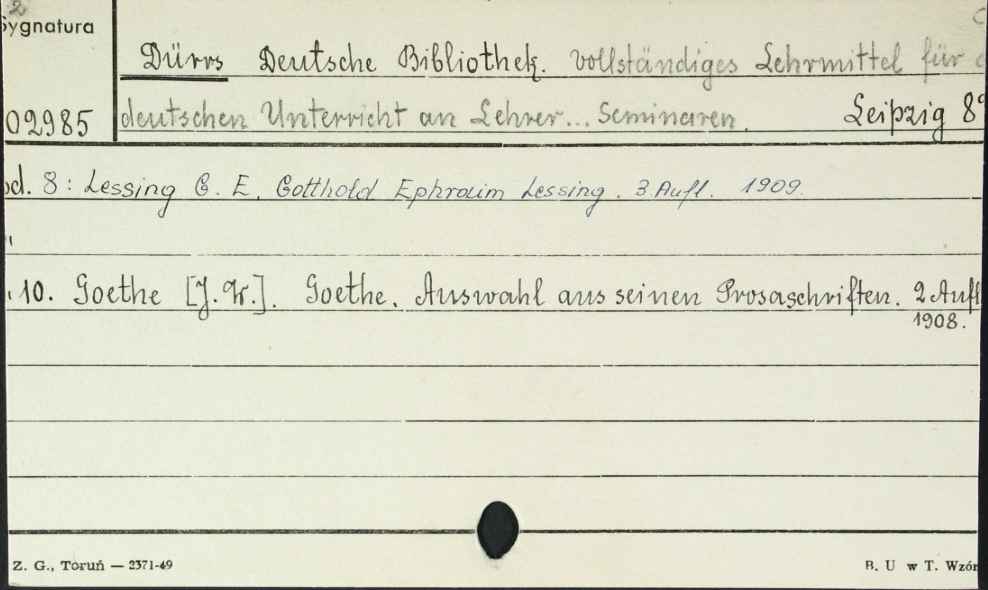 Sygnatura
Dürrs Deutsche Bibliothek. Vollständiges Lehrmittel für
02985 deutschen Unterricht an Lehrer... Seminaren. Leipzig 8°
Bd. 8: Lessing G. E. Gotthold Ephraim Lessing. 3. Aufl. 1909.
"
10. Goethe [J. W.]. Goethe. Auswahl aus seinen Prosaschriften. 2 Aufl
1908.
Z. G., Toruń — 2371-49 B. U w T. Wzór